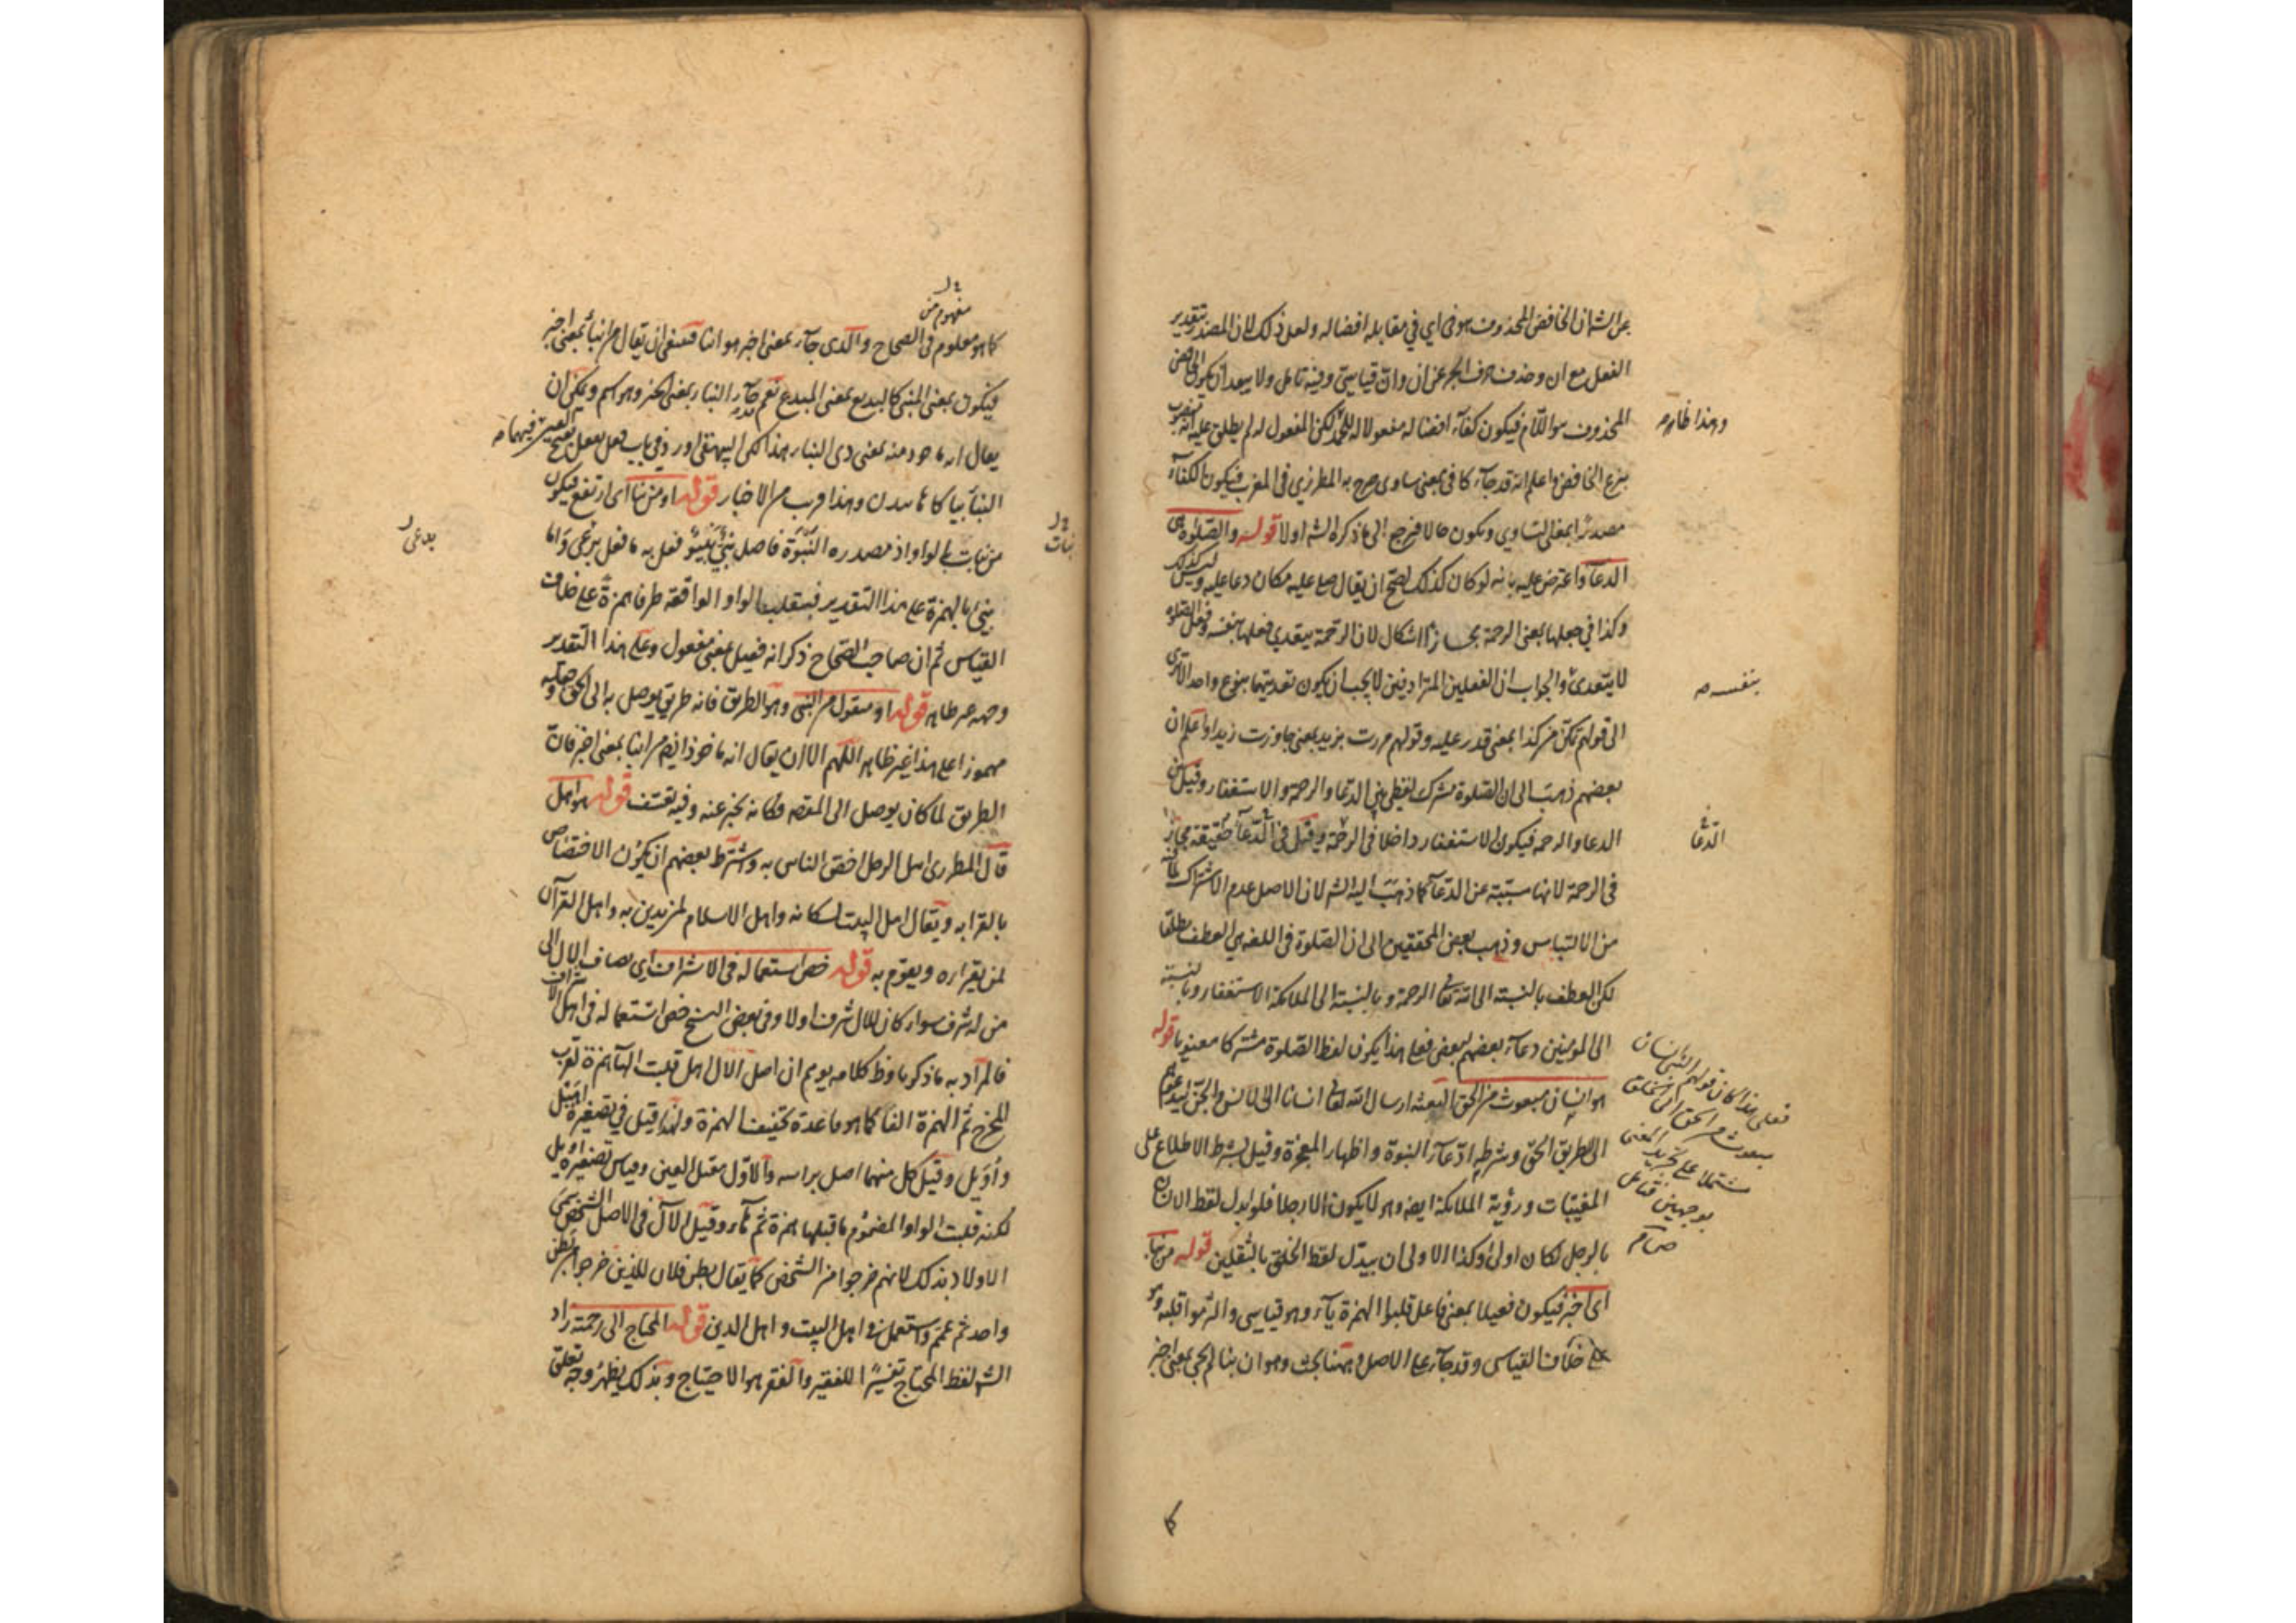 عن الشه ان الخافض المحذوف هو في اي في مقابلة افضاله ولعل ذلك لان المصدر بتقدير
الفعل مع ان وحذف حرف الجر عن ان وان قياسي وفيه تامل ولا يبعد ان يكون الخافض
المحذوف هو اللام فيكون كفاء افضاله مفعولا له للحمد لكن المفعول له لم يطلق عليه انه منصوب
وهذا ظاهر صح
بنزع الخافض واعلم انه قد جاء كافى بمعنى ساوى صرح به المطرزي في المغرب فيكون الكفاء
مصدرا بمعنى التساوي ويكون حالا فيرجع الى ما ذكره الشه اولا قوله والصلوة هي
الدعاء واعترض عليه بانه لو كان كذلك لصح ان يقال صلى عليه مكان دعا عليه وليس كذلك
وكذا في جعلها بمعنى الرحمة مجازا اشكال لان الرحمة يتعدي فعلها بنفسه وفعل الصلوة
لا يتعدى والجواب ان الفعلين المترادفين لا يجب ان يكون تعديتهما بنوع واحد الا ترى
بنفسه صح
الى قولهم تمكن من كذا بمعنى قدر عليه وقولهم مررت بزيد بمعنى جاوزت زيدا واعلم ان
بعضهم ذهب الى ان الصلوة مشترك لفظي بين الدعا والرحمة والاستغفار وقيل بين
الدعا والرحمة فيكون الاستغفار داخلا في الرحمة وقيل في الدعاء حقيقة مجاز
الدعا
في الرحمة لانها مسببة عن الدعاء كما ذهب اليه الشه لان الاصل عدم الاشتراك لما فيه
من الالتباس وذهب بعض المحققين الى ان الصلوة في اللغة هي العطف مطلقا
لكن العطف بالنسبة الى الله تعالى الرحمة وبالنسبة الى الملائكة الاستغفار وبالنسبة
الى المومنين دعاء بعضهم لبعض فعلى هذا يكون لفظ الصلوة مشتركا معنويا قوله
هو انسان مبعوث من الحق البعثة ارسال الله تعالى انسانا الى الانس والجن ليدعوهم
الى الطريق الحق وشرطه ادعاء النبوة واظهار المعجزة وقيل يشترط الاطلاع على
المغيبات ورؤية الملائكة ايضه وهو لا يكون الا رجلا فلو ابدل لفظ الانسان
بالرجل لكان اولى وكذا الاولى ان يبدل لفظ الخلق بالثقلين قوله من نبا
اي اخبر فيكون فعيلا بمعنى فاعل قلبوا الهمزة ياء وهو قياسي والتزموا قلبه وهو
على خلاف القياس وقد جاء على الاصل وههنا بحث وهو ان نبا لم يجئ بمعنى اخبر
فعلى هذا كان قولهم النبي انسان
مبعوث من الحق الى الخلق
مشتملا على تجريد المعنى
بوجهين فتامل
مفهوم من
كما هو معلوم في الصحاح والذي جاء بمعنى اخبر هو انبا فينبغي ان يقال من انبأ بمعنى اخبر
فيكون بمعنى المنبئ كالبديع بمعنى المبدع نعم جاء النبأ بمعنى الخبر وهو اسم ويمكن ان
يقال انه ماخوذ منه بمعنى ذي النبا هذا لكن البيهقي اورد في باب فعل يفعل بفتح العين فيهما صح
قوله او من نبا اي ارتفع فيكون
من نبات بالواو اذ مصدره النبوة فاصل نبي نبيو فعل به ما فعل برعى واما
نبات
يدعى
نبئ بالهمزة على هذا التقدير فبقلب الواو الواقعة طرفا همزة على خلاف
القياس ثم ان صاحب الصحاح ذكر انه فعيل بمعنى مفعول وعلى هذا التقدير
قوله او منقول من النبي وهو الطريق فانه طريق يوصل به الى الحق وجعله
مهموزا على هذا غير ظاهر اللهم الا ان يقال انه ماخوذ ايضه من انبا بمعنى اخبر فان
الطريق لما كان يوصل الى المقصه فكانه يخبر عنه وفيه تعسف قوله هو اهل
قال المطرزي اهل الرجل اخص الناس به وشرط بعضهم ان يكون الاختصاص
بالقرابة ويقال اهل البيت لسكانه واهل الاسلام لمن يدين به واهل القرآن
لمن يقراه ويقوم به قوله خص استعماله في الاشراف اي يضاف الال الى
من له شرف سواء كان للال شرف اولا وفي بعض النسخ خص استعماله في اهل الاشراف
فالمراد به ما ذكر وظ كلامه يوهم ان اصل الال اهل قلبت الهاء همزة لقرب
المخرج ثم الهمزة الفا كما هو قاعدة تخفيف الهمزة ولهذا قيل في تصغيره اهيل
واويل وقيل كل منهما اصل براسه والاول معتل العين وقياس تصغيره اويل
لكنه قلبت الواو المضموم ما قبلها همزة ثم هاء وقيل الآل في الاصل الشخص سمى
الاولاد بذلك لانهم خرجوا من الشخص كما يقال بطن فلان للذين خرجوا من بطن
واحد ثم عمم واستعمل في اهل البيت واهل الدين قوله المحتاج الى رحمته زاد
الشه لفظ المحتاج تفسيرا للفقير والفقر هو الاحتياج وبذلك يظهر وجه تعلق